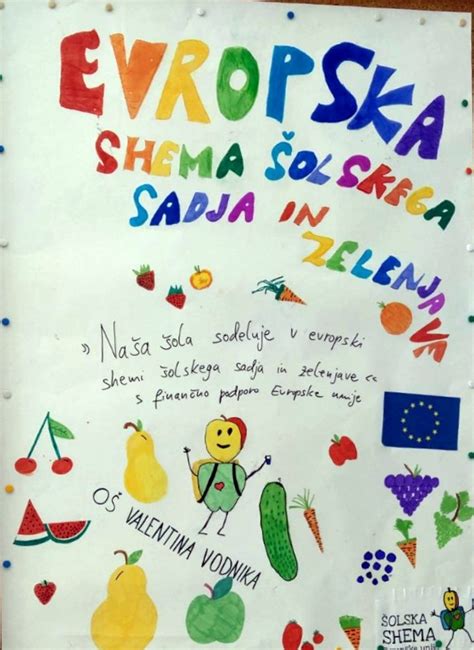 EVROPSKA
SHEMA ŠOLSKEGA
SADJA IN
ZELENJAVE
» Naša šola sodeluje v evropski
shemi šolskega sadja in zelenjave
s finančno podporo Evropske unije
OŠ VALENTINA VODNIKA
ŠOLSKA
SHEMA
Evropske unije